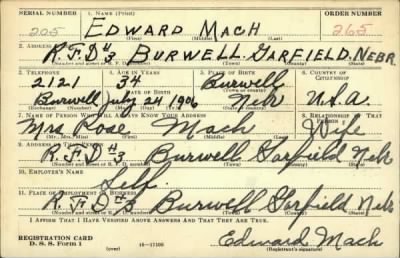 SERIAL NUMBER 1. NAME (Print) ORDER NUMBER
205 EDWARD MACH 265
2. ADDRESS (Print)
R.F.D #3 BURWELL GARFIELD, NEBR.
3. TELEPHONE 4. AGE IN YEARS 5. PLACE OF BIRTH 6. COUNTRY OF CITIZENSHIP
2121 34 Burwell
DATE OF BIRTH (Town or county)
Burwell July 24 1906 Nebr U.S.A.
(Exchange) (Mo.) (Day) (Yr.) (State or country)
7. NAME OF PERSON WHO WILL ALWAYS KNOW YOUR ADDRESS 8. RELATIONSHIP OF THAT PERSON
Mrs Rose Mach Wife
(Mr., Mrs., Miss) (First) (Middle) (Last)
9. ADDRESS OF THAT PERSON
R.F.D #3 Burwell Garfield Nebr
(Number and street or R. F. D. number) (Town) (County) (State)
10. EMPLOYER'S NAME
Self.
11. PLACE OF EMPLOYMENT OR BUSINESS
R.F.D #3 Burwell Garfield Nebr
(Number and street or R. F. D. number) (Town) (County) (State)
I AFFIRM THAT I HAVE VERIFIED ABOVE ANSWERS AND THAT THEY ARE TRUE.
REGISTRATION CARD
D. S. S. Form 1 (over) 16—17105 Edward Mach
(Registrant's signature)